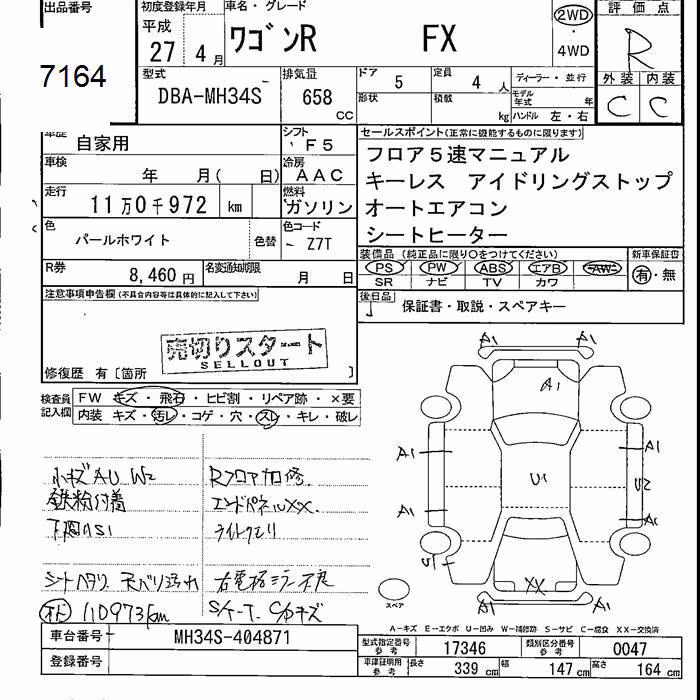 出品番号
7164
初度登録年月
平成
27年 4月
車名・グレード
ワゴンR FX
2WD
・
4WD
評価点
R
外装 内装
C C
型式
DBA-MH34S
排気量
658
CC
ドア 5
形状
定員 4 人
積載 kg
ディーラー・並行
モデル年式 年
ハンドル 左・右
車歴
自家用
シフト
F5
車検
年 月( 日)
冷房
AAC
走行
11万0千972 km
燃料
ガソリン
色
パールホワイト
色替
色コード
Z7T
R券
8,460円
名変通知期限
月 日
セールスポイント(正常に機能するものに限ります)
フロア5速マニュアル
キーレス アイドリングストップ
オートエアコン
シートヒーター
装備品 (純正品に限り○をつけてください)
PS PW ABS エアB AW
SR ナビ TV カワ
新車保証書
有・無
後日品
保証書・取説・スペアキー
注意事項申告欄(不具合内容等は具体的に記入して下さい)
売切りスタート
SELLOUT
修復歴 有〔箇所 〕
検査員
記入欄
FW キズ・飛石・ヒビ割・リペア跡・×要
内装 キズ・汚レ・コゲ・穴・スレ・キレ・破レ
小キズAU W2
鉄粉付着
下回りS1
シートヘタリ 天バリ汚れ
110973km
Rフロア加修
エンドパネルXX
ライトクモリ
右電格ミラー不良
S/ケース C/Pキズ
A1 A1
A1
A1 A1
U1
U2
A1 A1
S
XX
A1 A1
スペア
A-キズ E-エクボ U-凹み W-補修跡 S-サビ C-腐食 XX-交換済
車台番号 MH34S-404871
登録番号
型式指定番号
参考
17346
類別区分番号
参考
0047
車庫証明用
参考
長さ 339 cm 幅 147 cm 高さ 164 cm